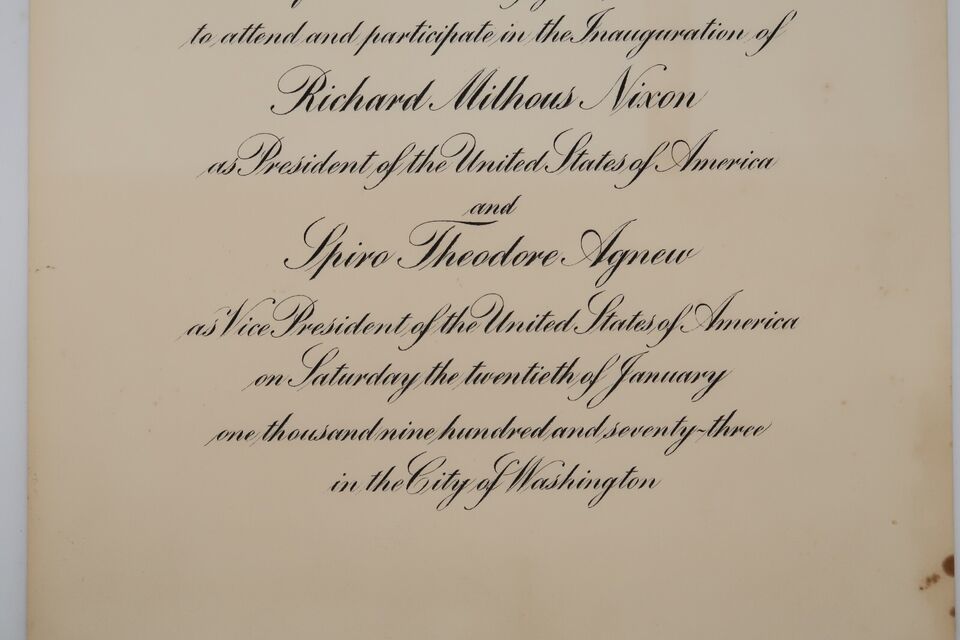 to attend and participate in the Inauguration of
Richard Milhous Nixon
as President of the United States of America
and
Spiro Theodore Agnew
as Vice President of the United States of America
on Saturday the twentieth of January
one thousand nine hundred and seventy-three
in the City of Washington